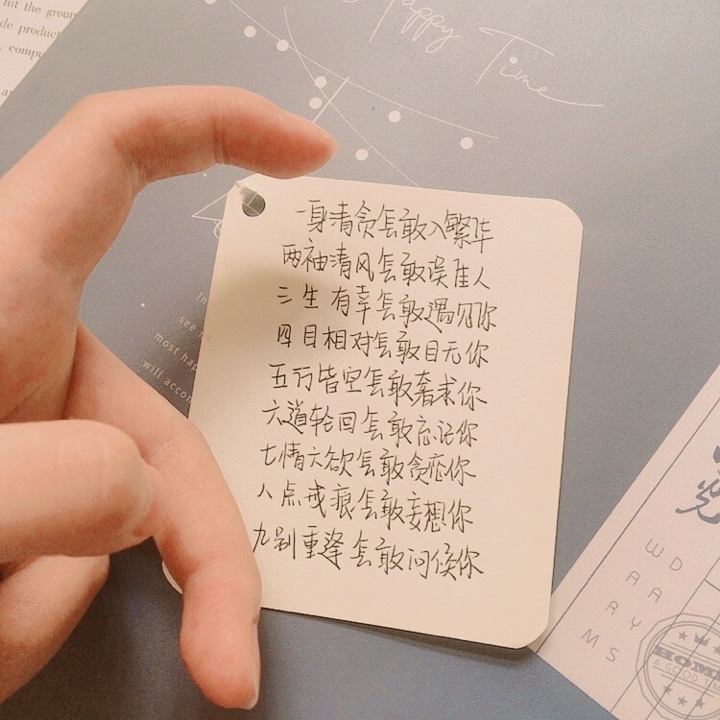 hit the groun
de produc
compu
Happy Time
一身清贫怎敢入繁华
两袖清风怎敢误佳人
三生有幸怎敢遇见你
四目相对怎敢目无你
五行皆空怎敢奢求你
六道轮回怎敢忘记你
七情六欲怎敢贪恋你
八点戒痕怎敢妄想你
九别重逢怎敢问候你
In
see
most hap
will accom
WARM
DAY
HOME
A GOOD